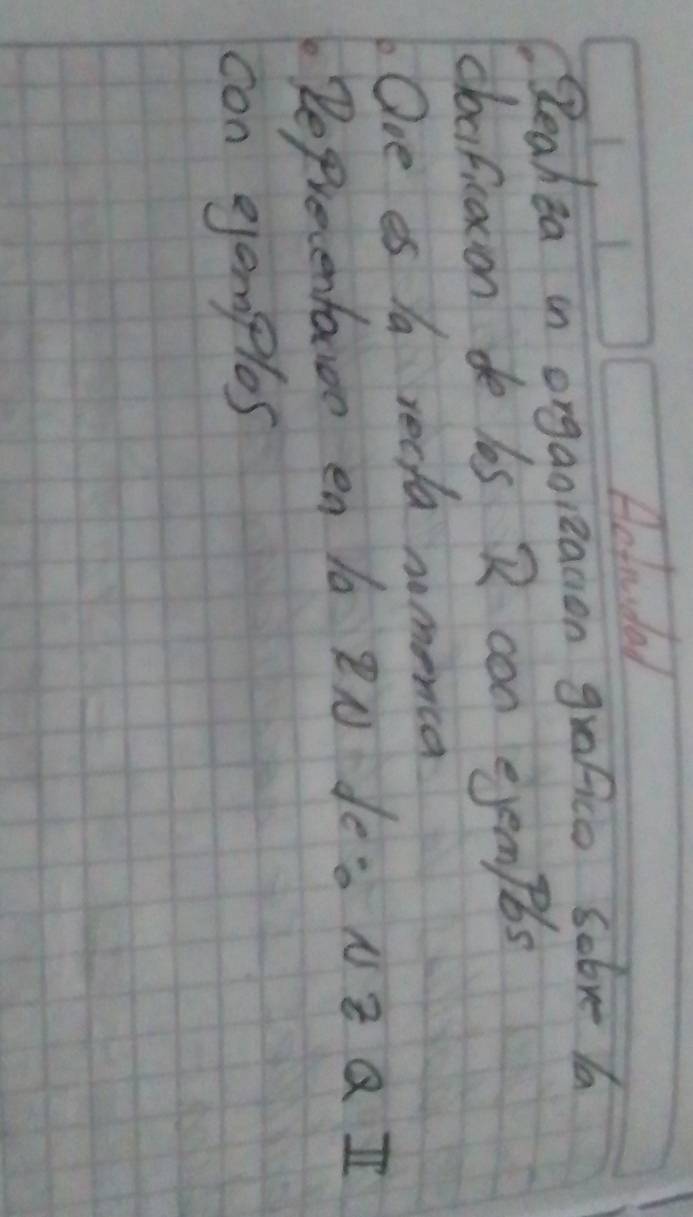 Actividad
• Realiza un organizacion grafico sobre la
clacificacion de los R con ejemplos
• Que es la recta numerica
• Reprecentacion en la RN de: N Z Q II
con ejemplos